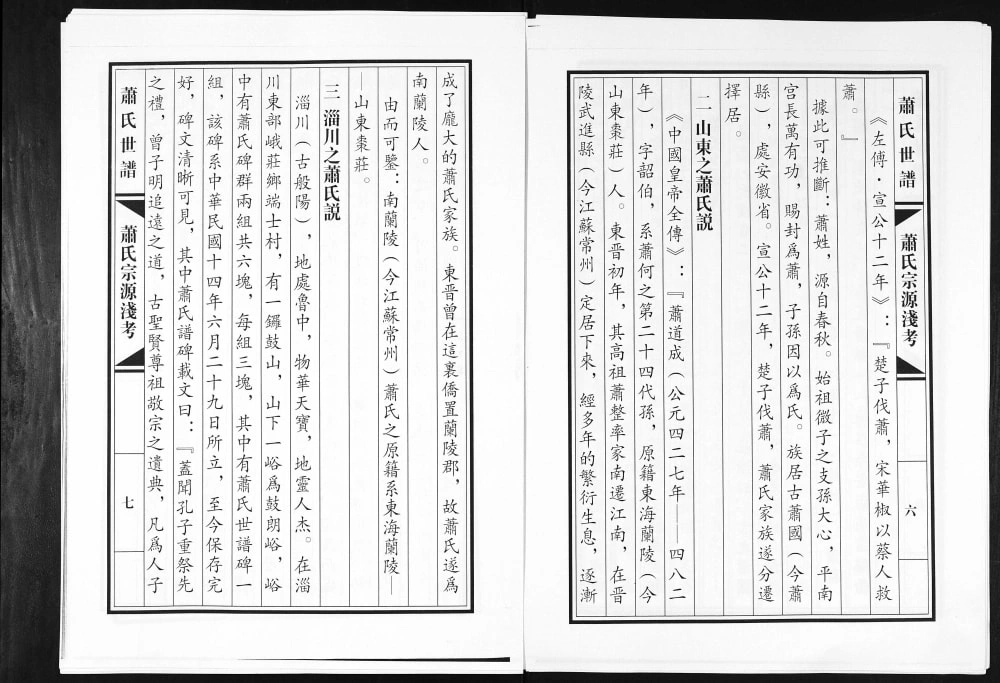 蕭氏世譜
蕭氏宗源淺考
六
《左傅·宣公十二年》：『楚子伐蕭，宋華椒以蔡人救
蕭。』
據此可推斷：蕭姓，源自春秋。始祖微子之支孫大心，平南
宫長萬有功，賜封爲蕭，子孫因以爲氏。族居古蕭國（今蕭
縣），處安徽省。宣公十二年，楚子伐蕭，蕭氏家族遂分遷
擇居。
二 山東之蕭氏説
《中國皇帝全傳》：『蕭道成（公元四二七年——四八二
年），字韶伯，系蕭何之第二十四代孫，原籍東海蘭陵（今
山東棗莊）人。東晋初年，其高祖蕭整率家南遷江南，在晋
陵武進縣（今江蘇常州）定居下來，經多年的繁衍生息，逐漸
成了龐大的蕭氏家族。東晋曾在這裏僑置蘭陵郡，故蕭氏遂爲
南蘭陵人。
由而可鑒：南蘭陵（今江蘇常州）蕭氏之原籍系東海蘭陵—
—山東棗莊。
三 淄川之蕭氏説
淄川（古般陽），地處魯中，物華天寶，地靈人杰。在淄
川東部峨莊鄉端士村，有一鑼鼓山，山下一峪爲鼓朗峪，峪
中有蕭氏碑群兩組共六塊，每組三塊，其中有蕭氏世譜碑一
組，該碑系中華民國十四年六月二十九日所立，至今保存完
好，碑文清晰可見，其中蕭氏譜碑載文曰：『蓋聞孔子重祭先
之禮，曾子明追遠之道，古聖賢尊祖敬宗之遺典，凡爲人子
蕭氏世譜
蕭氏宗源淺考
七